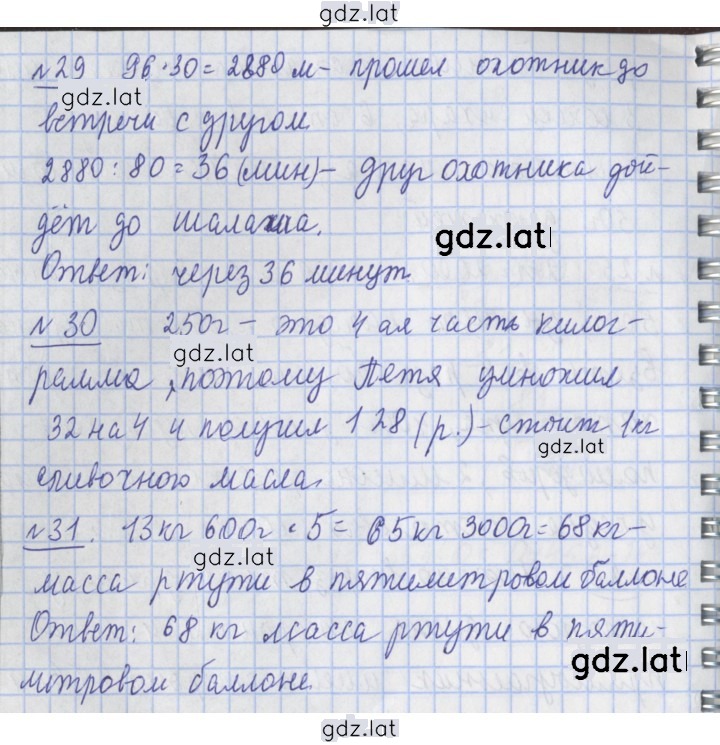 gdz.lat
№29 96·30=2880 м- прошел охотник до
gdz.lat
встречи с другом
2880:80=36 (мин)- друг охотника дой-
дёт до шалаша.
gdz.lat
Ответ: через 36 минут.
№30 250г - это 4 ая часть килог-
gdz.lat
рамма, поэтому Петя умножил
32 на 4 и получил 128 (р.)- стоит 1кг
gdz.lat
сливочного масла.
№31. 13кг 600г · 5 = 65кг 3000г = 68кг-
gdz.lat
масса ртути в пятилитровом баллоне
Ответ: 68 кг масса ртути в пяти-
gdz.lat
метровом баллоне.
gdz.lat